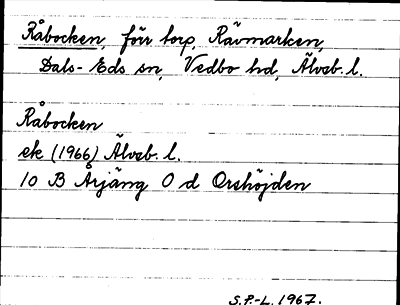 Råbocken, förr torp, Rävmarken,
Dals-Eds sn, Vedbo hd, Älvsb. l.
Råbocken
ek (1966) Älvsb. l.
10 B Årjäng 0 d Orshöjden
S.P-L. 1967.